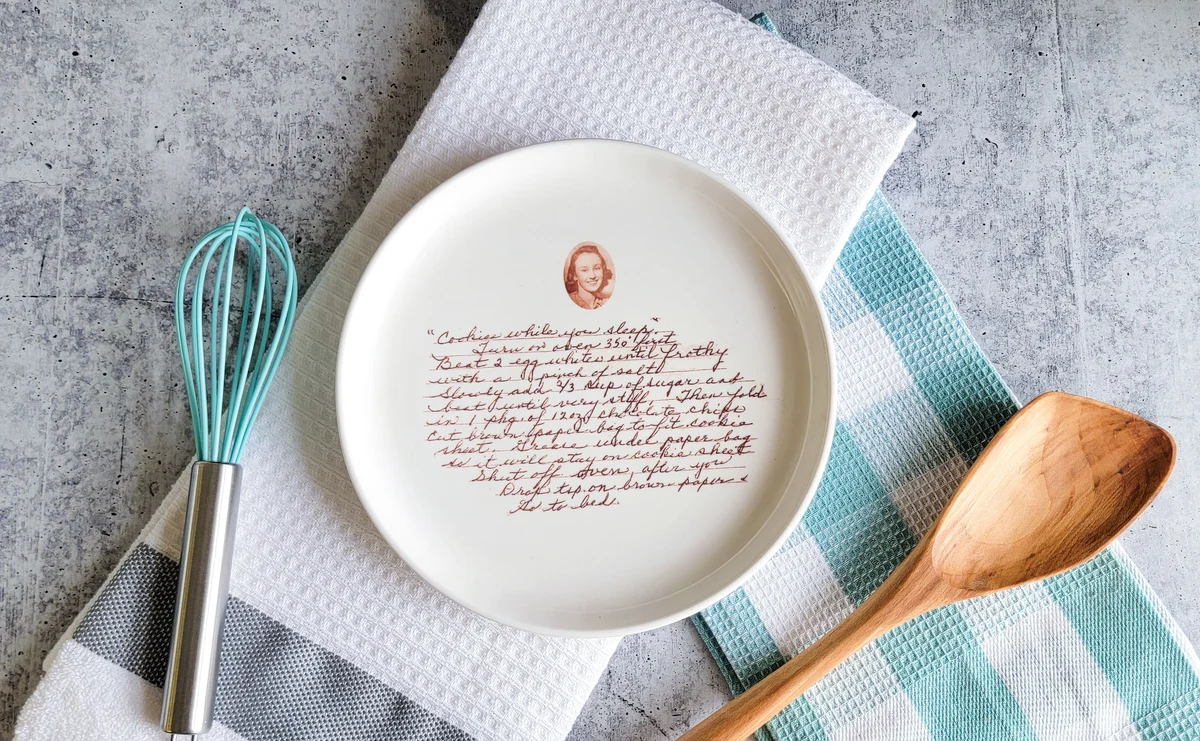 "Cookies while you sleep"
Turn on oven 350° first
Beat 2 egg whites until frothy
with a pinch of salt
Slowly add 2/3 cup of sugar and
beat until very stiff. Then fold
in 1 pkg of 12oz chocolate chips
Cut brown paper bag to fit cookie
sheet. Grease under paper bag
so it will stay on cookie sheet
Shut off oven, after you
Drop tsp. on brown paper &
Go to bed.